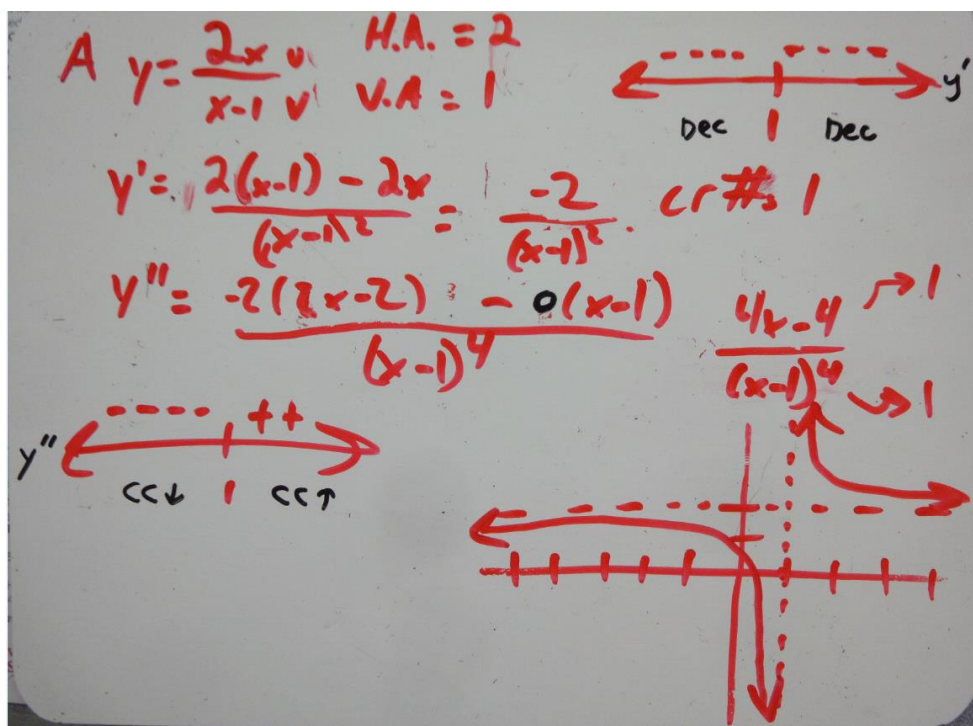 A y = 2x u / x-1 v H.A. = 2
V.A = 1
---- ---- y'
Dec 1 Dec
y' = 2(x-1) - 2x / (x-1)² = -2 / (x-1)² cr #s 1
y'' = -2(2x-2) - 0(x-1) / (x-1)⁴
4x-4 → 1 / (x-1)⁴ → 1
y'' ---- ++
CC↓ 1 CC↑